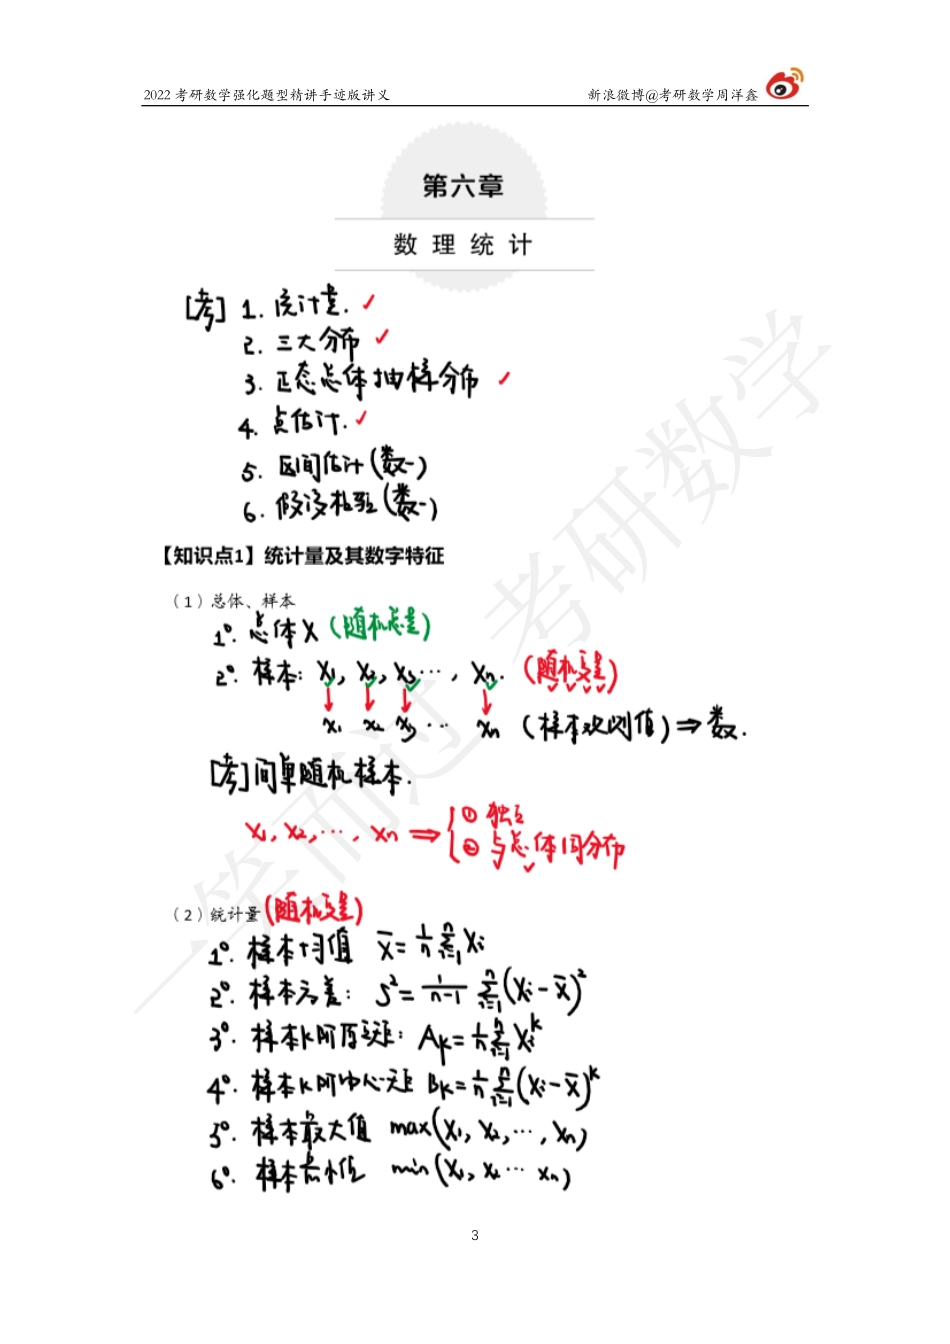 2022 考研数学强化题型精讲手迹版讲义 新浪微博@考研数学周洋鑫
第六章
数理统计
[考] 1. 统计量. ✓
2. 三大分布 ✓
3. 正态总体抽样分布 ✓
4. 点估计. ✓
5. 区间估计(数一)
6. 假设检验(数一)
【知识点1】统计量及其数字特征
（1）总体、样本
1°. 总体X (随机变量)
2°. 样本: X₁, X₂, X₃ ⋯, Xn. (随机变量)
x₁ x₂ x₃ ⋯ xn (样本观测值) ⇒ 数.
[考] 简单随机样本.
X₁, X₂, ⋯, Xn ⇒ { ① 独立
② 与总体同分布
（2）统计量 (随机变量)
1°. 样本均值 X̄ = 1/n ∑ᵢ₌₁ⁿ Xi
2°. 样本方差: S² = 1/(n-1) ∑ᵢ₌₁ⁿ (Xi - X̄)²
3°. 样本k阶原点矩: Ak = 1/n ∑ᵢ₌₁ⁿ Xiᵏ
4°. 样本k阶中心矩 Bk = 1/n ∑ᵢ₌₁ⁿ (Xi - X̄)ᵏ
5°. 样本最大值 max(X₁, X₂, ⋯, Xn)
6°. 样本最小值 min(X₁, X₂ ⋯ Xn)
3
一笑而过 考研数学